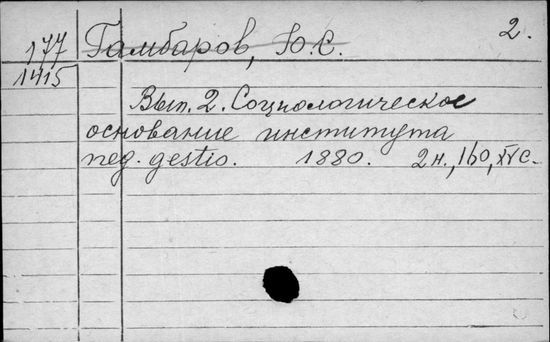 2.
177 Гамбаров, Ю.С.
1415
Вып. 2. Социологическое
основание института
neg. gestio. 1880. 2 н., 160, XV с.